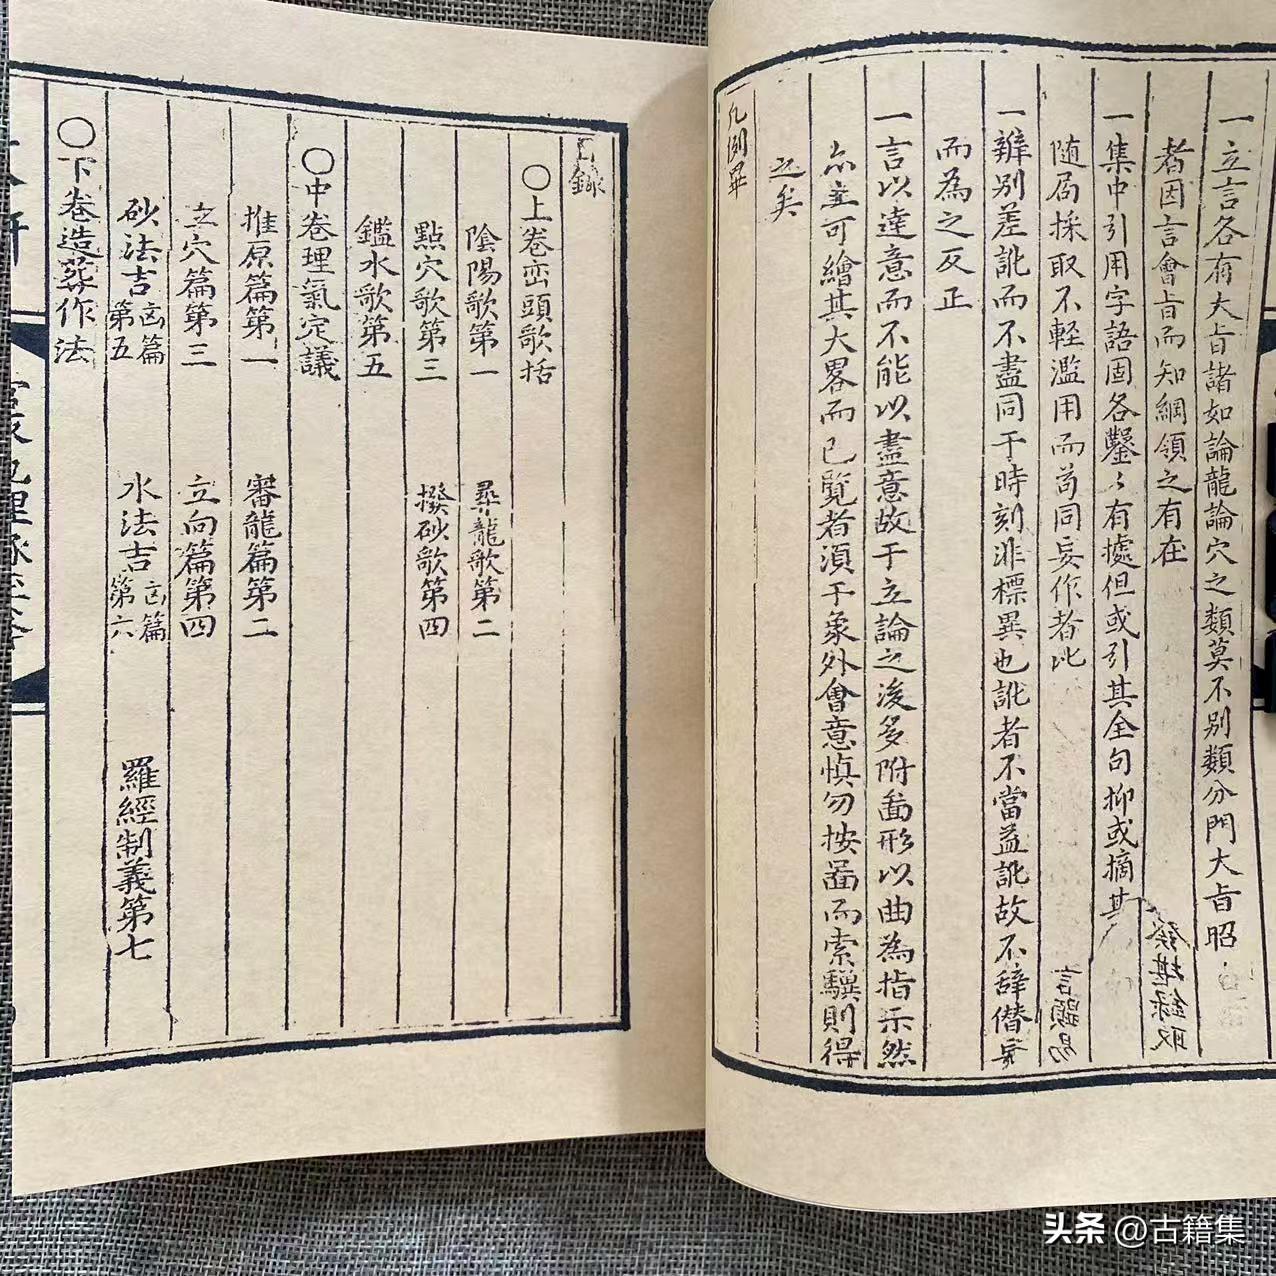 一立言各有大旨諸如論龍論穴之類莫不別類分門大旨昭
者因言會旨而知綱領之有在
一集中引用字語固各鑿〻有據但或引其全句抑或摘其
随局採取不輕濫用而苟同妄作者比
言顯易
一辨别差訛而不盡同于時刻非標異也訛者不當益訛故不辞僭妄
而為之反正
一言以達意而不能以盡意故于立論之後多附啚形以曲為指示然
亦䖏可繪其大畧而已覽者須于象外會意慎勿按啚而索驥則得
之矣
凡例畢
目録
〇上卷巒頭歌括
陰陽歌第一 尋龍歌第二
點穴歌第三 撥砂歌第四
鑑水歌第五
〇中卷理氣定議
推原篇第一 審龍篇第二
立穴篇第三 立向篇第四
砂法吉凶篇第五 水法吉凶篇第六 羅經制義第七
〇下卷造葬作法
头条 @古籍集